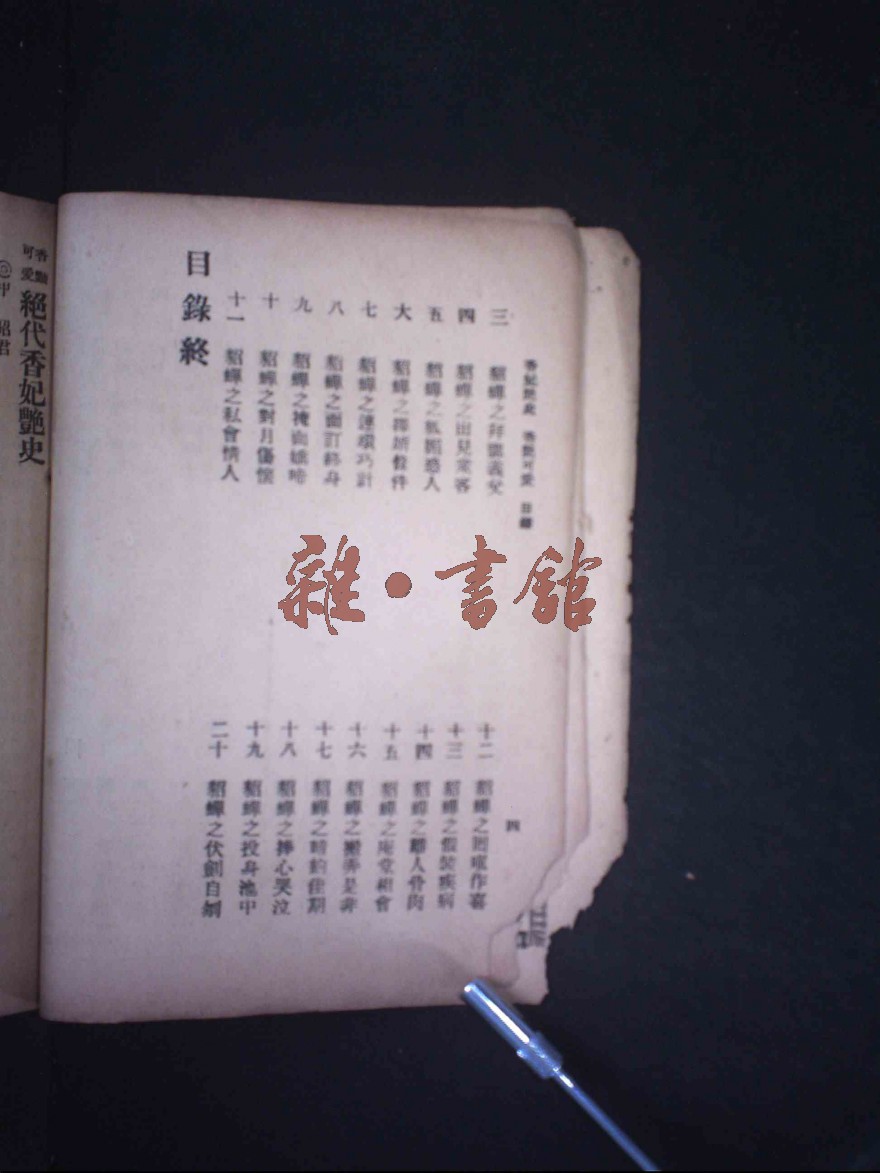 香妃艶史 香艶可愛 目錄
三 貂蟬之拜認義父
四 貂蟬之出見業客
五 貂蟬之氤氳惑人
大 貂蟬之
七 貂蟬之連環巧計
八 貂蟬之面訂終身
九 貂蟬之掩面
十 貂蟬之對月傷懷
十一 貂蟬之私會情人
四
十二 貂蟬之回嗔作喜
十三 貂蟬之假裝疾病
十四 貂蟬之離人骨肉
十五 貂蟬之庵堂相會
十六 貂蟬之搬弄是非
十七 貂蟬之暗約佳期
十八 貂蟬之捧心哭泣
十九 貂蟬之投身池中
二十 貂蟬之伏劍自刎
目錄終
香艷可愛 絕代香妃艷史
昭君
雜•書館